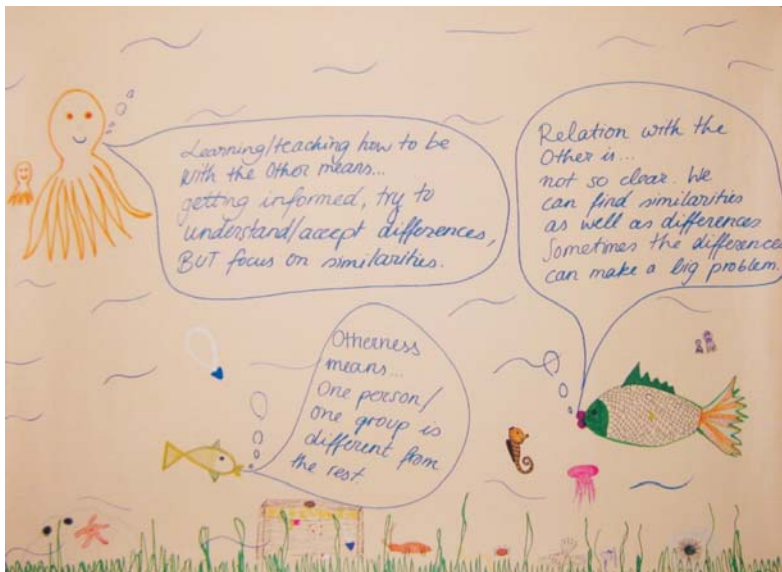 Learning/teaching how to be
with the Other means...
getting informed, try to
understand/accept differences,
BUT focus on similarities.
Relation with the
Other is...
not so clear. We
can find similarities
as well as differences
Sometimes the difference
can make a big problem.
Otherness
means...
One person/
one group is
different from
the rest.